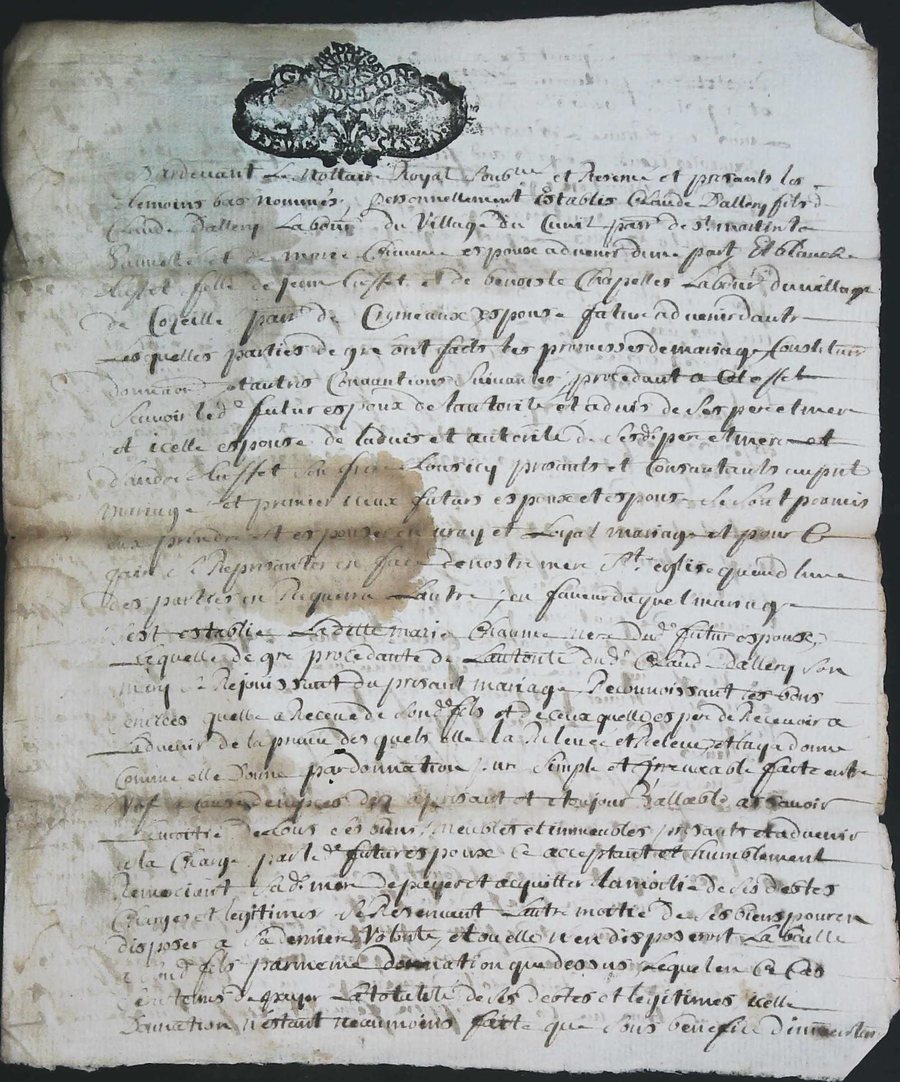 G DE LION
Pardevant Le Nottaire Royal Soub.ne et Reservé et presants les
temoins bas nommés, personnellement Establis Claude Dallery fils d
Claude Dallery Labour.r du Village du parr. de St. martin la
et de marie Chaume espoux advenir dune part Et blanche
fille de Jean et de benoiste Chapelles Labour.r du village
de parr. de espouse future advenir dautre
Lesquelles parties de gré ont faicts les promesses de mariage Constitu.on
donnaon et autres Convantions Suivantes, procedant a
Scavoir led.t futur espoux de lautorité et advis de Ses pere et mere
et icelle espouse de ladvis et autorité de Sesd. pere et mere et
Son frere presants et Consantants au pnt
mariage et premier iceux futurs espoux et espouse Se Sont promis
eux prendre et espouser en vray et Loyal mariage et pour Ce
faire Se Representer en face de nostre mere Ste. eglise quand lune
des parties en Requerra Lautre, en faveur duquel mariage
Sest establie Laditte marie Chaume mere dud. futur espoux,
Laquelle de gré procedante de Lautorité dud. Claude Dallery Son
mary Se Rejouissant du presant mariage Reconnoissant les bons
services quelle a Receue de Sond. fils et de ceux quelle espere de Recevoir a
Ladvenir de la preuve desquels elle la Relevé et Releve, et luy a donné
Comme elle Donne par donnation pure Simple et irrevocable faicte entre
vifs a cause de nopces dez a presant et toujour Vallable, a Scavoir
La moitié de tous ses biens, meubles et immeubles presants et advenir
a la Charge par led. futur espoux Ce acceptant et humblement
Remerciant Sad. mere de payer et acquitter la moitié de Ses debtes
Charges et legitimes Se Reservant Lautre moitié de Ses biens pour en
disposer a Sa derniere Volonté, et ou elle n'en disposeroit La baille
a Sond. fils par meme donnation que dessus, Lequel en Ce Cas
de payer La totalité de Ses debtes et legitimes icelle
Donnation n'estant neaumoins faicte que Sous benefice d'inventaire